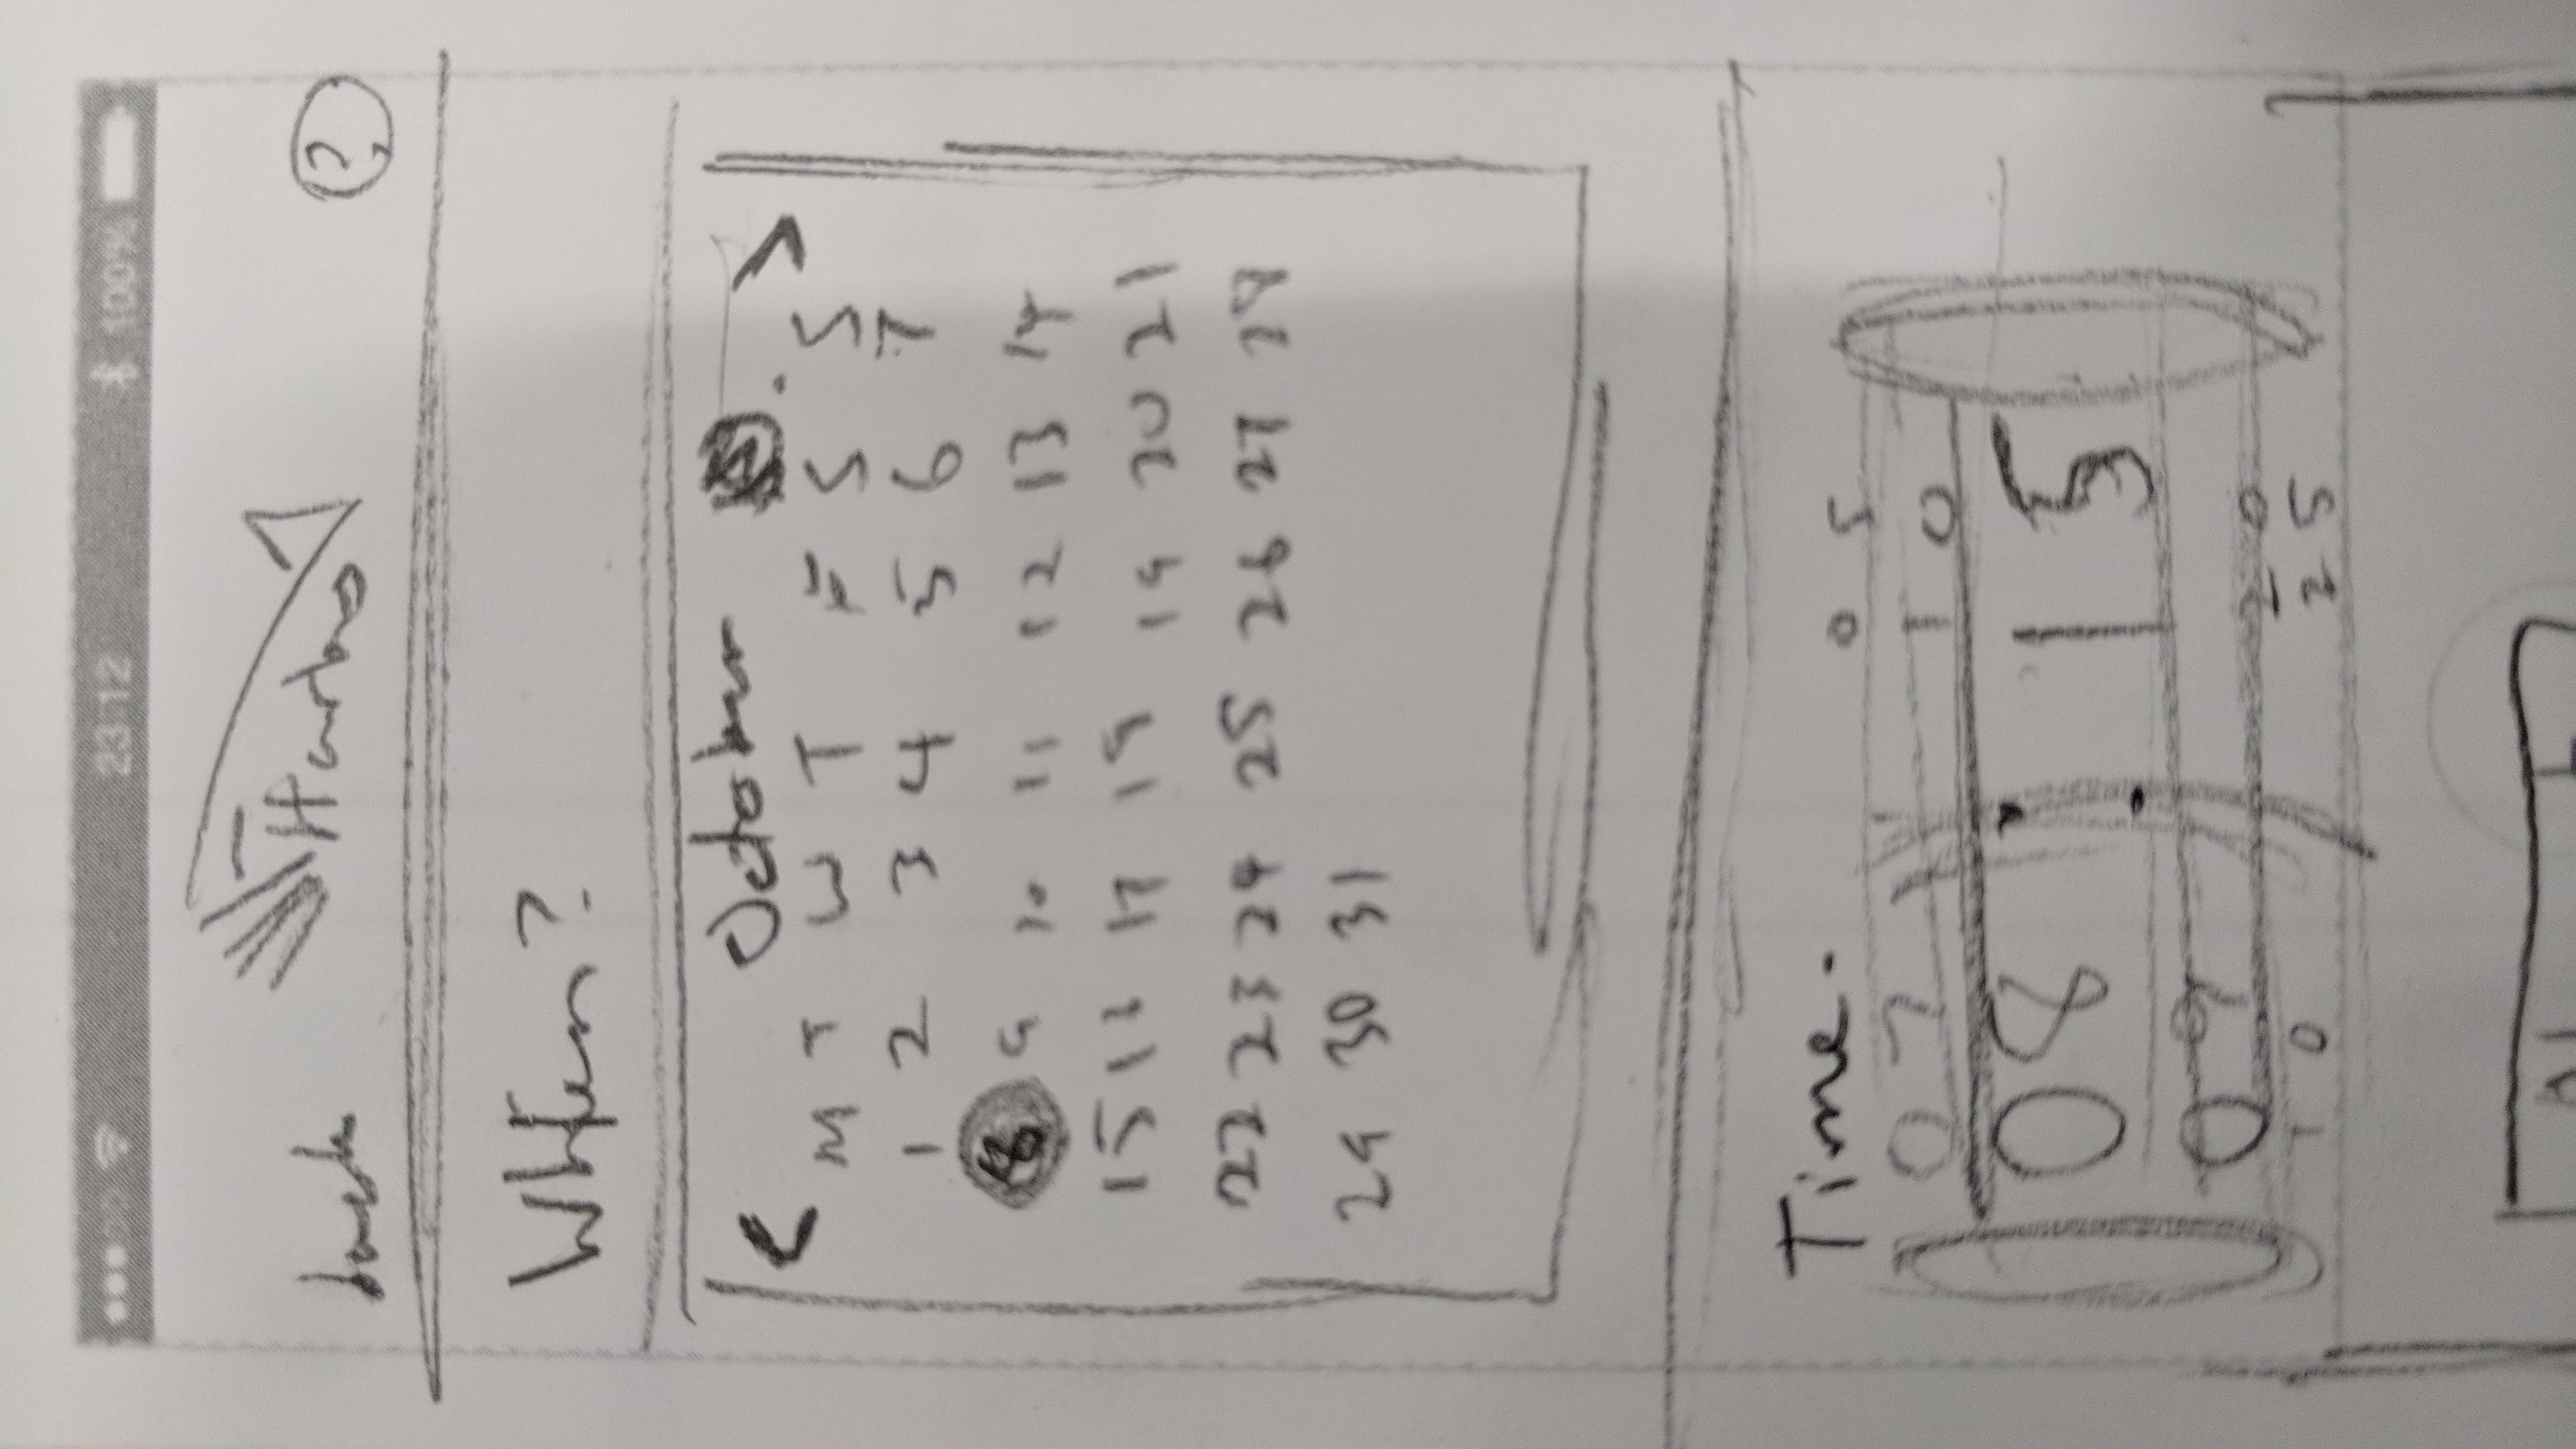 23:12 100%
back Harbro ?
When?
< October >
M T W T F S S
1 2 3 4 5 6 7
8 9 10 11 12 13 14
15 16 17 19 19 20 21
22 23 24 25 26 27 28
29 30 31
Time.
0 5
07 10
08 : 15
09 20
10 25